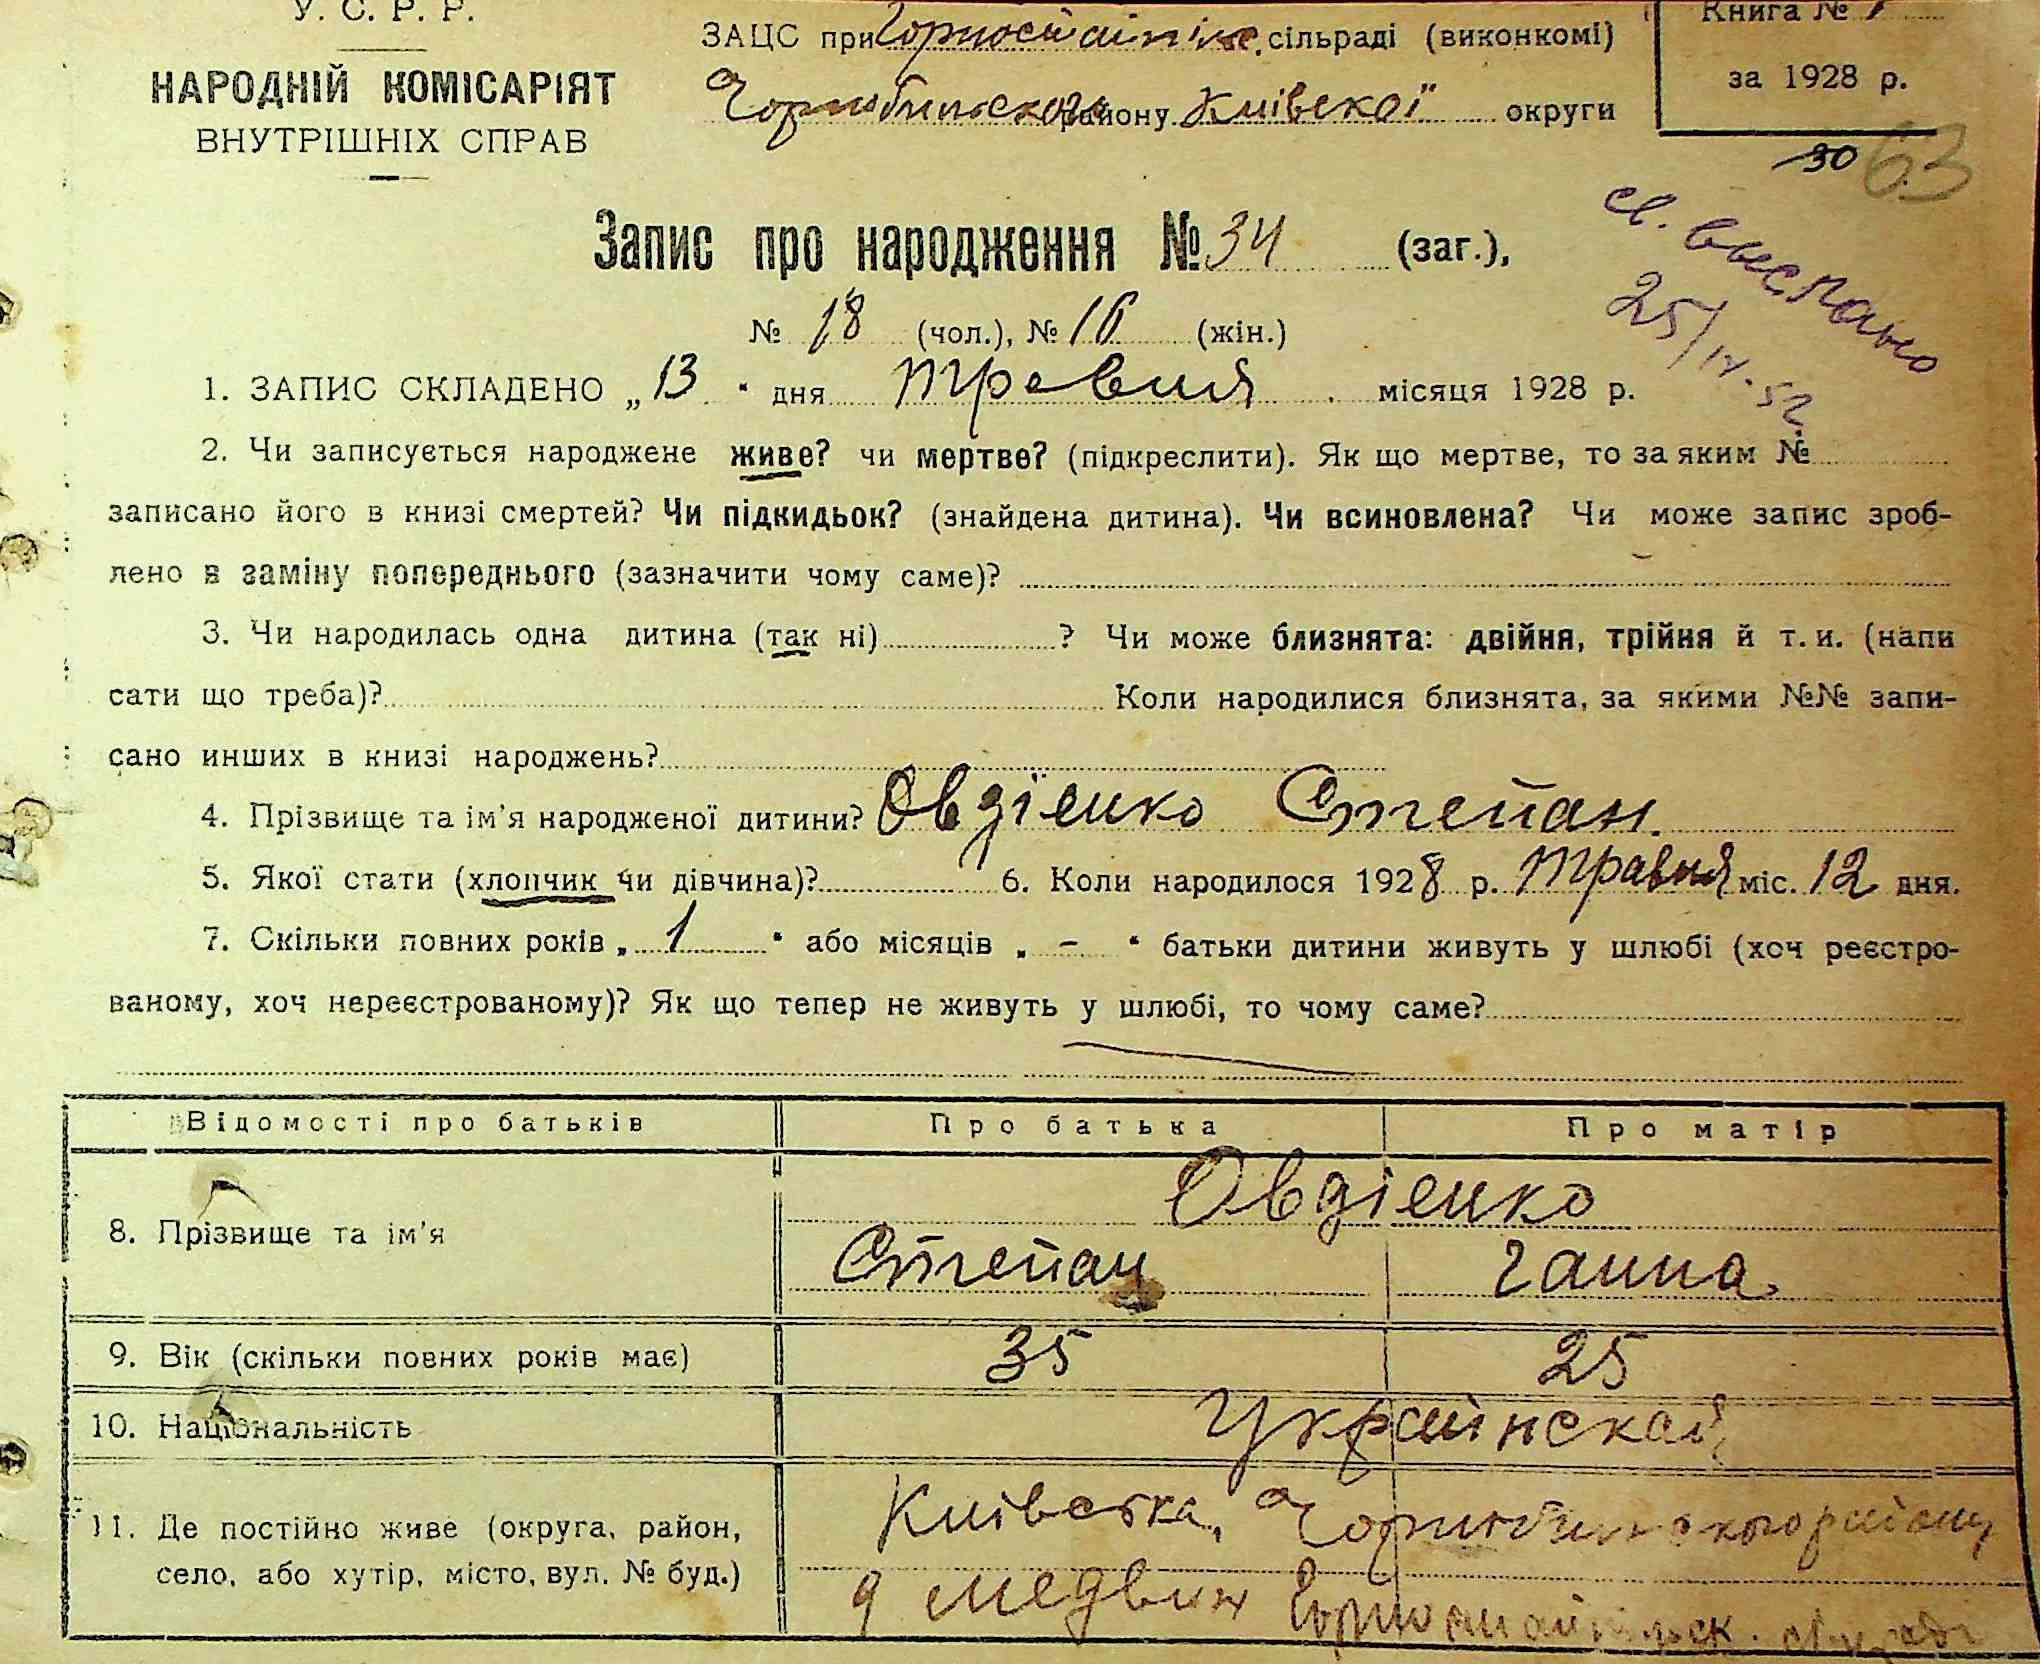 У. С. Р. Р.
НАРОДНІЙ КОМІСАРІЯТ
ВНУТРІШНІХ СПРАВ
ЗАЦС при Горностайпільс. сільраді (виконкомі)
району Київскої округи
Книга № 1
за 1928 р.
30 63
св. выслано
25/IV.52
Запис про народження № 34 (заг.),
№ 18 (чол.), № 16 (жін.)
1. ЗАПИС СКЛАДЕНО „ 13 “ дня травня місяця 1928 р.
2. Чи записується народжене живе? чи мертве? (підкреслити). Як що мертве, то за яким №
записано його в книзі смертей? Чи підкидьок? (знайдена дитина). Чи всиновлена? Чи може запис зроб-
лено в заміну попереднього (зазначити чому саме)?
3. Чи народилась одна дитина (так ні) ? Чи може близнята: двійня, трійня й т. и. (напи
сати що треба)? Коли народилися близнята, за якими №№ запи-
сано инших в книзі народжень?
4. Прізвище та ім’я народженої дитини? Овдієнко Степан.
5. Якої стати (хлопчик чи дівчина)? 6. Коли народилося 1928 р. травня міс. 12 дня.
7. Скільки повних років „ 1 “ або місяців „ – “ батьки дитини живуть у шлюбі (хоч реєстро-
ваному, хоч нереєстрованому)? Як що тепер не живуть у шлюбі, то чому саме?
Відомості про батьків Про батька Про матір
Овдієнко
8. Прізвище та ім’я Степан Ганна
9. Вік (скільки повних років має) 35 25
10. Національність
11. Де постійно живе (округа, район,
село, або хутір, місто, вул. № буд.)
Київська, району
Медвин